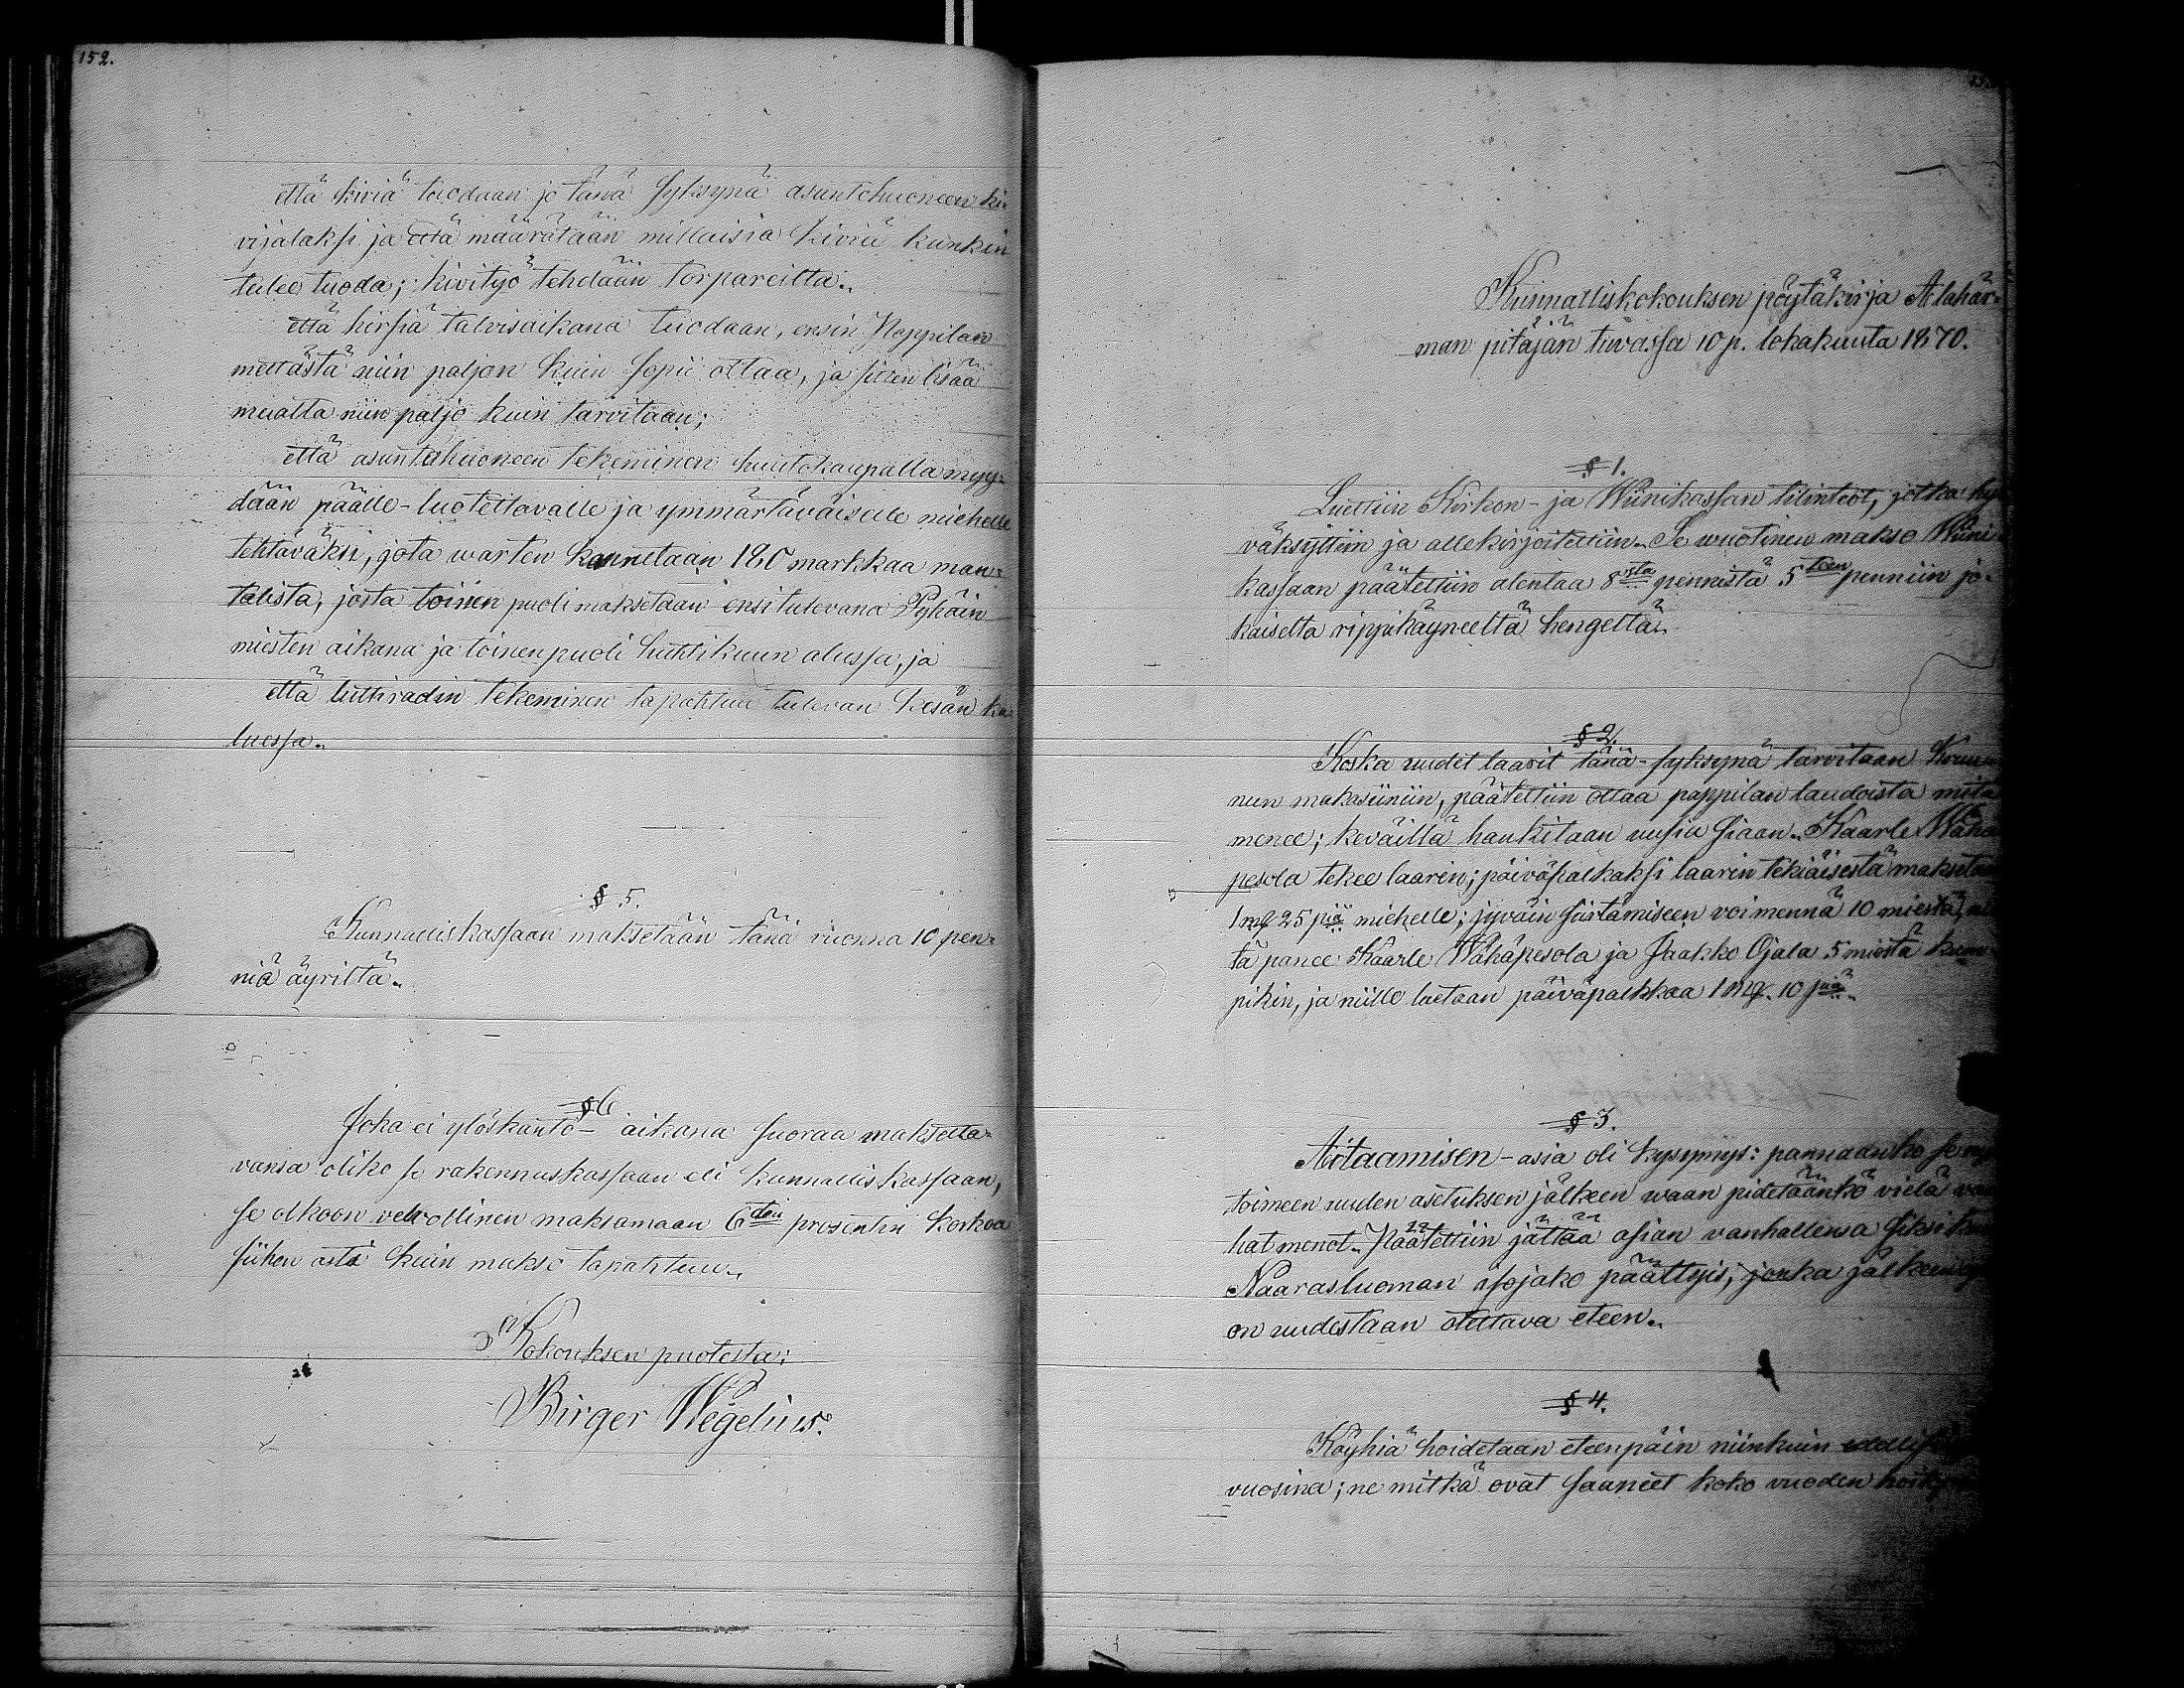 152.
että kiviä tuodaan jo tänä syksynä asuntohuoneen ki-
vijalaksi ja että määrätään millaisia kiviä kunkin
tulee tuoda; kivityö tehdään torpareilta.
että hirsiä talvisaikana tuodaan, ensin Pappilan
mettästä niin paljon kuin sopii ottaa, ja sitten lisää
mualta niin paljo kuin tarvitaan;
että asuntohuoneen tekeminen huutokaupalla myy-
dään päälle-luotettavalle ja ymmärtäväiselle miehelle
tehtäväksi, jota warten kannetaan 180 markkaa man-
talista, josta toinen puoli maksetaan ensitulevana Pyhäin
miesten aikana ja toinen puoli huhtikuun alussa, ja
että luttiradin tekeminen tapahtuu tulevan kesän ku-
luessa.
§ 5.
Kunnalliskassaan maksetaan tänä vuonna 10 pen-
niä äyriltä.
§ 6
Joka ei ylöskanto-aikana suoraa maksetta-
vansa oliko se rakennuskassaan eli kunnalliskassaan,
se olkoon velvollinen maksamaan 6den prosentin korkoa
siihen asti kuin makso tapahtuu.
Kokouksen puolesta:
Birger Wegelius.
Kunnalliskokouksen pöytäkirja Alahär-
män pitäjän tuvassa 10 p. lokakuuta 1870.
§ 1.
Luettiin Kirkon- ja Wiinikassan tilinteot, jotka hy-
väksyttiin ja allekirjoitettiin. Se wuotinen makso Wiini-
kassaan päätettiin alentaa 8sta pennistä 5teen penniin jo-
kaiselta rippikäyneeltä hengeltä.
§ 2.
Koska uudet laarit tänä-syksynä tarvitaan Kruu-
nun makasiiniin, päätettiin ottaa pappilan laudoista mitä
menee; keväillä hankitaan uusia siaan. Kaarle Wähä-
pesola tekee laarin; päiväpalkaksi laarin tekiäisestä maksetaan
1 mg 25 piä miehelle; jyväin siirtämiseen voi mennä 10 miestä,
tä panee Kaarle Wähäpesola ja Jaakko Ojala 5 miestä kum-
pikin, ja niille luetaan päiväpalkkaa 1 mg. 10 piä.
§ 3.
Aitaamisen-asia oli kysymys: pannaanko se
toimeen uuden asetuksen jälkeen waan pidetäänkö vielä van-
hat menot. Päätettiin jättää asian vanhallensa siksi kuin
Naarasluoman isojako päättyis, jonka jälkeen
on uudestaan otettava eteen.
§ 4.
Köyhiä hoidetaan eteenpäin niinkuin edellisinä
vuosina; ne mitkä ovat saaneet koko vuoden